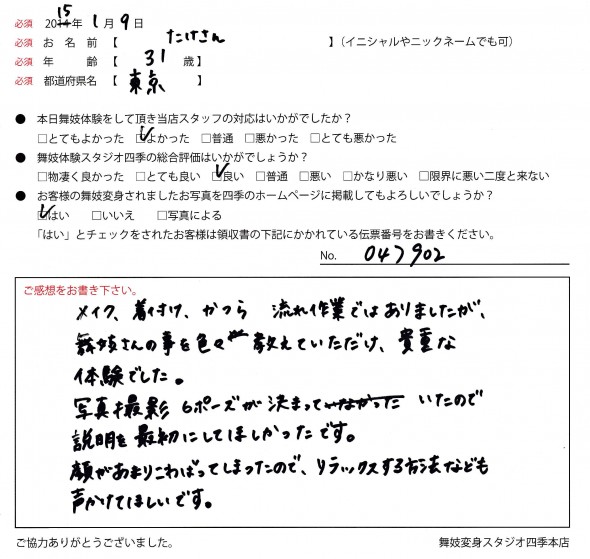 必須 2015年 1月 9日
必須 お 名 前 【 たけさん 】（イニシャルやニックネームでも可）
必須 年 齢 【 31 歳】
必須 都道府県名 【 東京 】
● 本日舞妓体験をして頂き当店スタッフの対応はいかがでしたか？
□とてもよかった ☑よかった □普通 □悪かった □とても悪かった
● 舞妓体験スタジオ四季の総合評価はいかがでしょうか？
□物凄く良かった □とても良い ☑良い □普通 □悪い □かなり悪い □限界に悪い二度と来ない
● お客様の舞妓変身されましたお写真を四季のホームページに掲載してもよろしいでしょうか？
☑はい □いいえ □写真による
「はい」とチェックをされたお客様は領収書の下記にかかれている伝票番号をお書きください。
No. 047902
ご感想をお書き下さい。
メイク、着付け、かつら 流れ作業ではありましたが、
舞妓さんの事を色々教えていただけ、貴重な
体験でした。
写真撮影 6ポーズが決まっていなかった いたので
説明を最初にしてほしかったです。
顔があまりこわばってしまったので、リラックスする方法なども
声かけてほしいです。
ご協力ありがとうございました。 舞妓変身スタジオ四季本店